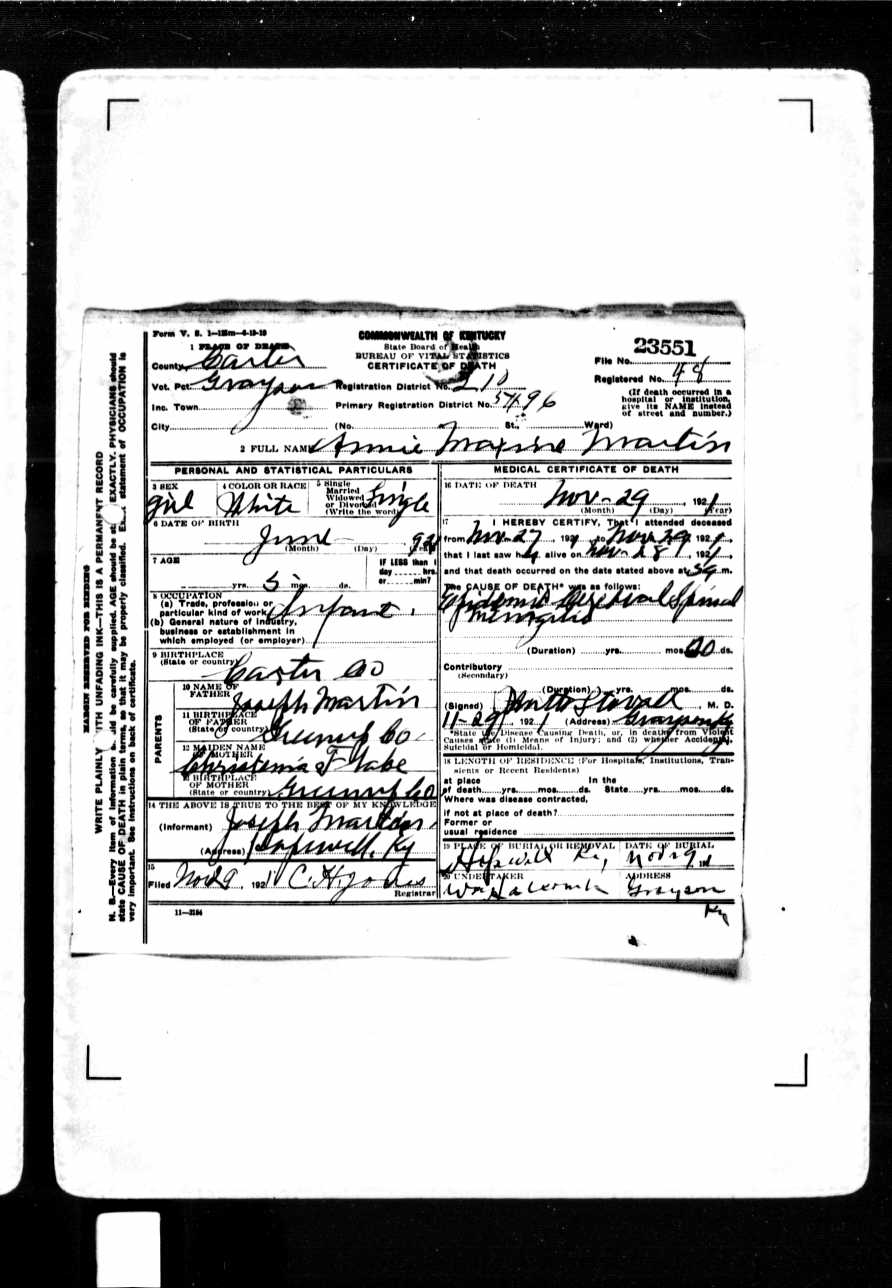 Form V. S. 1—125m—4-19-19
COMMONWEALTH OF KENTUCKY
State Board of Health
BUREAU OF VITAL STATISTICS
CERTIFICATE OF DEATH
1 PLACE OF DEATH
County Carter
Vot. Pct. Grayson
Inc. Town
City
Registration District No. 210
Primary Registration District No. 5496
(No. St., Ward)
23551
File No.
Registered No. 48
(If death occurred in a
hospital or institution,
give its NAME instead
of street and number.)
2 FULL NAME Annie Maxine Martin
PERSONAL AND STATISTICAL PARTICULARS
3 SEX
girl
4 COLOR OR RACE
White
5 Single
Married
Widowed
or Divorced
(Write the word)
Single
6 DATE OF BIRTH
June
(Month) (Day) (Year)
7 AGE
yrs. 5 mos. ds.
IF LESS than 1
day hrs.
or min?
8 OCCUPATION
(a) Trade, profession or
particular kind of work Infant
(b) General nature of industry,
business or establishment in
which employed (or employer)
9 BIRTHPLACE
(State or country) Carter Co
PARENTS
10 NAME OF
FATHER Joseph Martin
11 BIRTHPLACE
OF FATHER
(State or country) Greenup Co
12 MAIDEN NAME
OF MOTHER
13 BIRTHPLACE
OF MOTHER
(State or country) Greenup Co
14 THE ABOVE IS TRUE TO THE BEST OF MY KNOWLEDGE
(Informant) Joseph Martin
(Address) Hopewell, Ky
15
Filed Nov 29 1921 C. H. Jones
Registrar
11—3184
MEDICAL CERTIFICATE OF DEATH
16 DATE OF DEATH
Nov-29, 1921
(Month) (Day) (Year)
17 I HEREBY CERTIFY, That I attended deceased
from Nov-27, 1921, to Nov 29, 1921,
that I last saw h alive on Nov-28, 1921,
and that death occurred on the date stated above at m.
The CAUSE OF DEATH* was as follows:
Epidemic Cerebral Spinal
Meningitis
(Duration) yrs. mos. ds.
Contributory
(Secondary)
(Duration) yrs. mos. ds.
(Signed) Stovall, M. D.
11-29, 1921 (Address) Grayson Ky
*State the Disease Causing Death, or, in deaths from Violent
Causes state (1) Means of Injury; and (2) whether Accidental,
Suicidal or Homicidal.
18 LENGTH OF RESIDENCE (For Hospitals, Institutions, Tran-
sients or Recent Residents)
at place In the
of death yrs. mos. ds. State yrs. mos. ds.
Where was disease contracted,
if not at place of death?
Former or
usual residence
19 PLACE OF BURIAL OR REMOVAL
Hopewell Ky,
DATE OF BURIAL
Nov 29
20 UNDERTAKER
ADDRESS
Grayson
Ky
MARGIN RESERVED FOR BINDING
WRITE PLAINLY WITH UNFADING INK—THIS IS A PERMANENT RECORD
N. B.—Every item of information should be carefully supplied. AGE should be stated EXACTLY. PHYSICIANS should
state CAUSE OF DEATH in plain terms, so that it may be properly classified. Exact statement of OCCUPATION is
very important. See instructions on back of certificate.